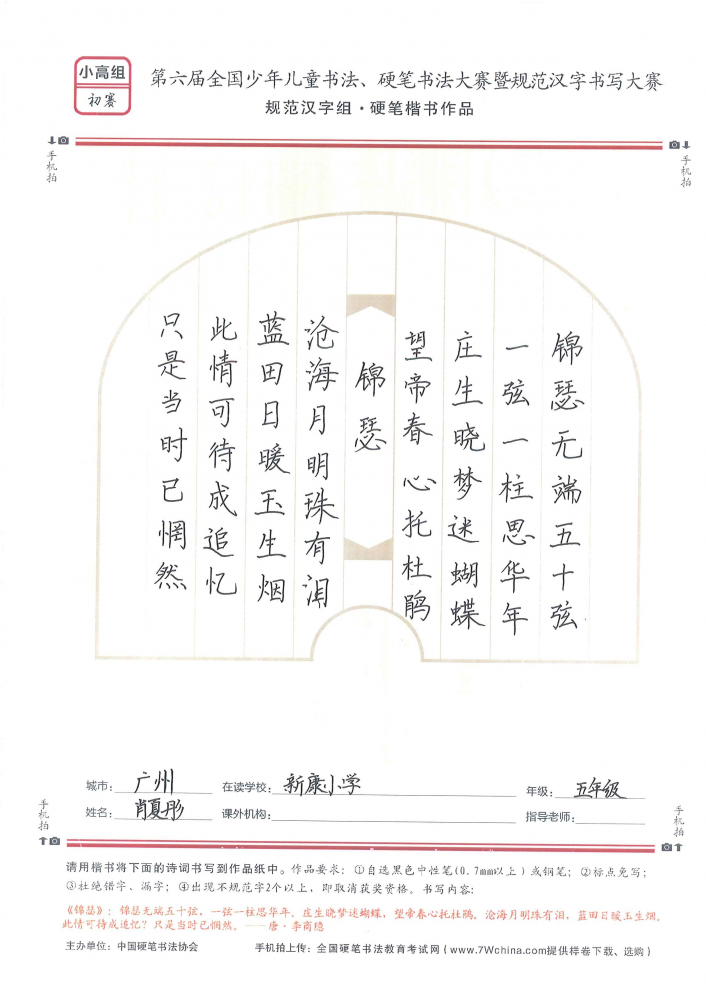 小高组
初赛
第六届全国少年儿童书法、硬笔书法大赛暨规范汉字书写大赛
规范汉字组·硬笔楷书作品
手机拍
手机拍
锦瑟无端五十弦
一弦一柱思华年
庄生晓梦迷蝴蝶
望帝春心托杜鹃
锦瑟
沧海月明珠有泪
蓝田日暖玉生烟
此情可待成追忆
只是当时已惘然
城市：广州 在读学校：新康小学 年级：五年级
姓名：肖夏彤 课外机构： 指导老师：
手机拍
手机拍
请用楷书将下面的诗词书写到作品纸中。作品要求：①自选黑色中性笔(0.7mm以上)或钢笔；②标点免写；
③杜绝错字、漏字；④出现不规范字2个以上，即取消获奖资格。书写内容：
《锦瑟》：锦瑟无端五十弦，一弦一柱思华年。庄生晓梦迷蝴蝶，望帝春心托杜鹃。沧海月明珠有泪，蓝田日暖玉生烟。
此情可待成追忆？只是当时已惘然。——唐·李商隐
主办单位：中国硬笔书法协会 手机拍上传：全国硬笔书法教育考试网（www.7Wchina.com提供样卷下载、选购）